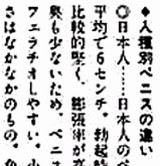 ◆人種別ペニスの違い
◎日本人……日本人のペ
平均で6センチ。勃起時
比較的堅く、膨張率が高
奥も少ないため、ペニス
フェラチオしやすい。小
さはなかなかのもの。